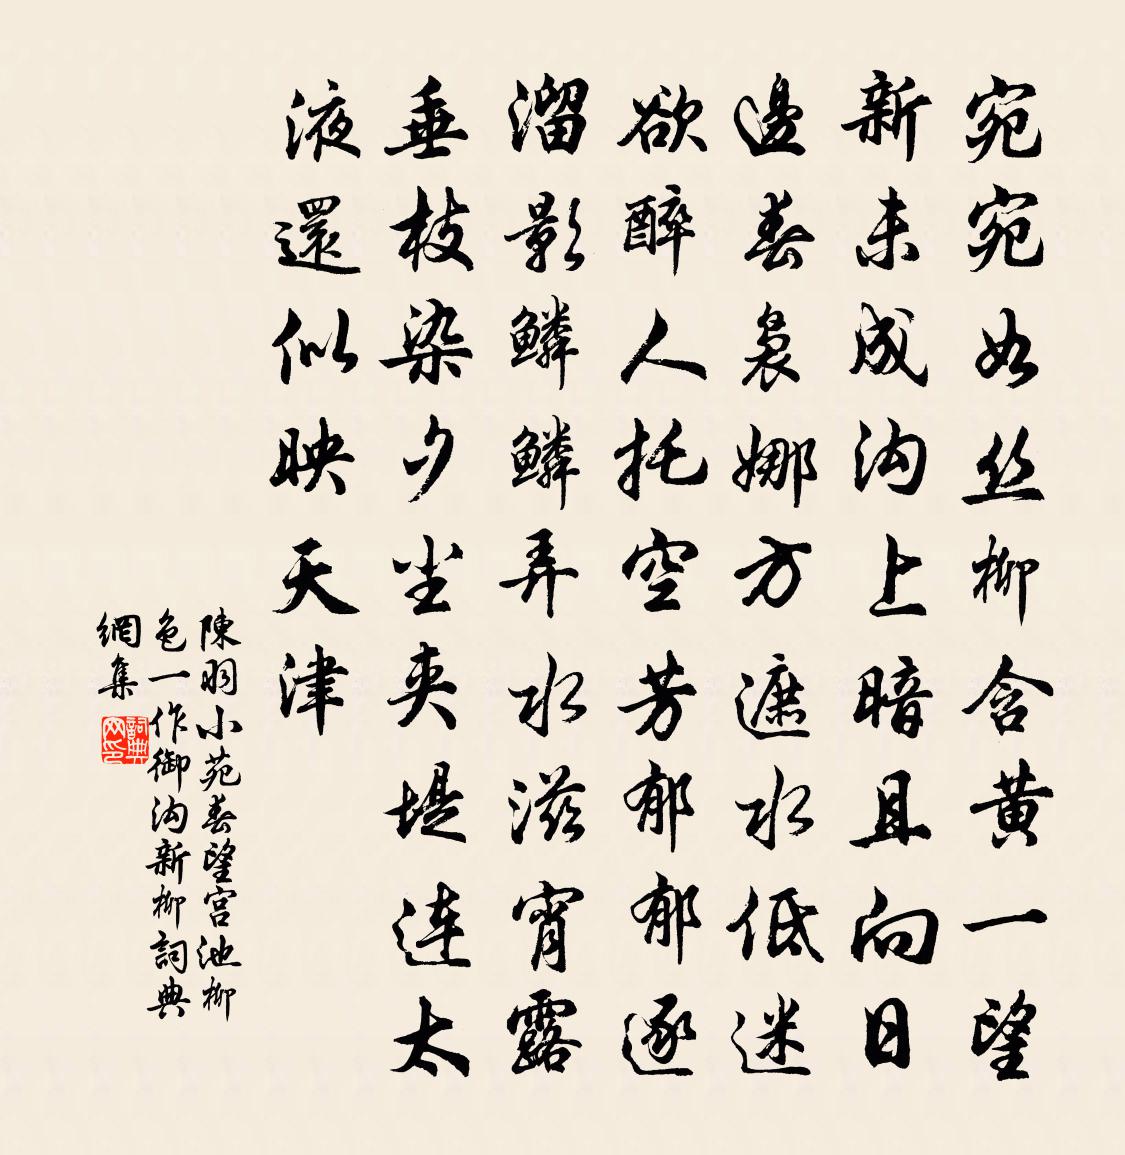 宛宛如丝柳含黄一望
新未成沟上暗且向日
邊春袅娜方遮水低迷
欲醉人托空芳郁郁逐
溜影鳞鳞弄水滋宵露
垂枝染夕尘夹堤连太
液還似映天津
陳羽小苑春望宫池柳
色一作御沟新柳詞典
網集
詞典网印